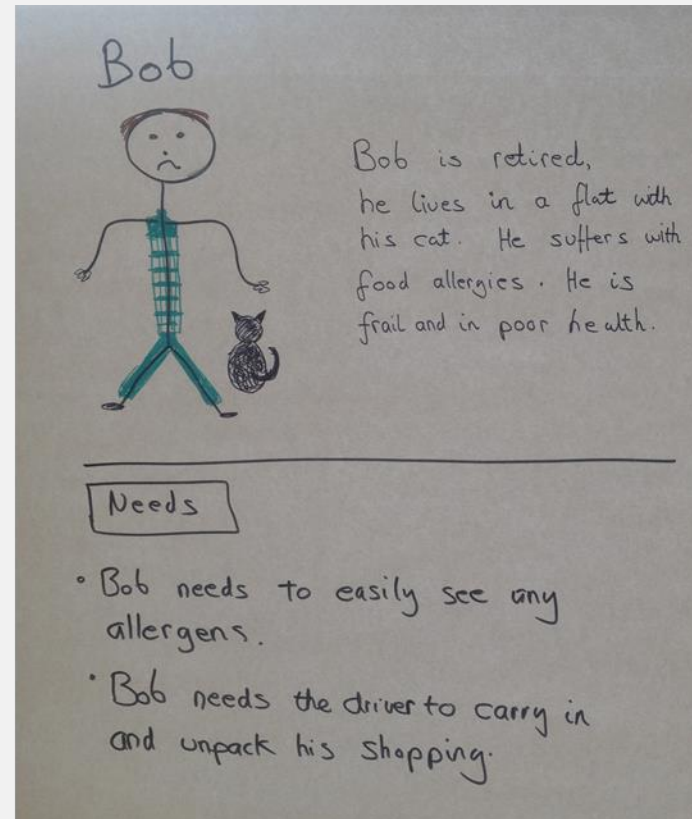 Bob
Bob is retired,
he lives in a flat with
his cat. He suffers with
food allergies. He is
frail and in poor health.
Needs
• Bob needs to easily see any
allergens.
• Bob needs the driver to carry in
and unpack his shopping.